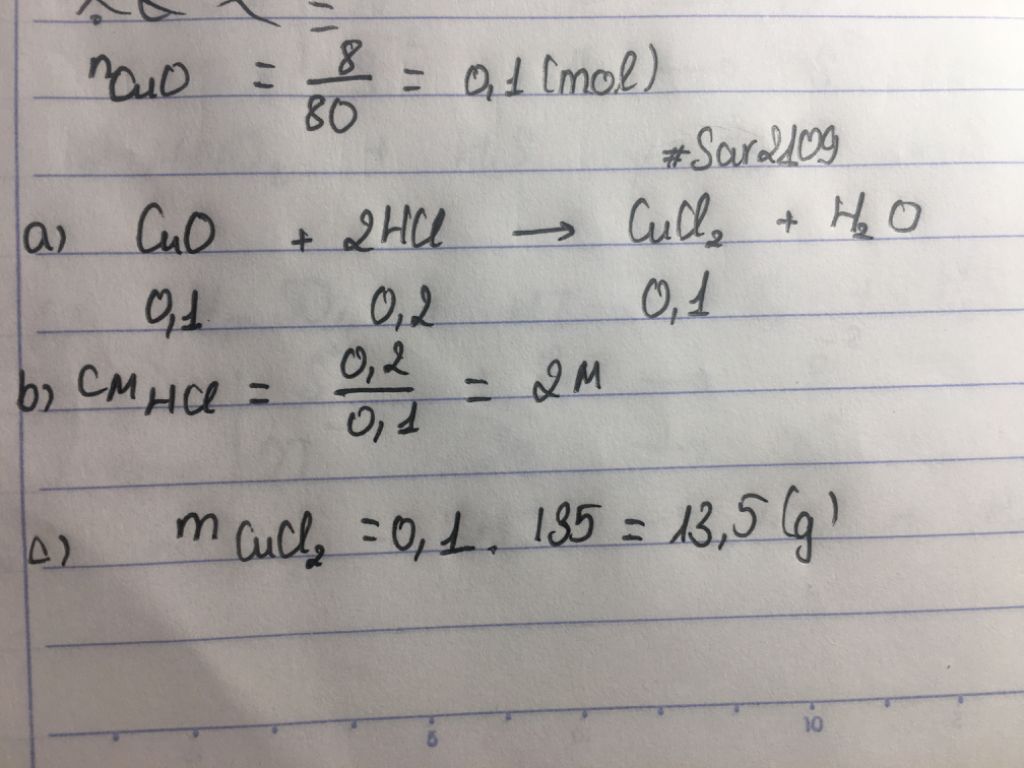 nCuO = 8/80 = 0,1 (mol)
#Sar2109
a) CuO + 2HCl → CuCl₂ + H₂O
0,1 0,2 0,1
b) CM HCl = 0,2/0,1 = 2M
c) mCuCl₂ = 0,1 . 135 = 13,5 (g)
5 10